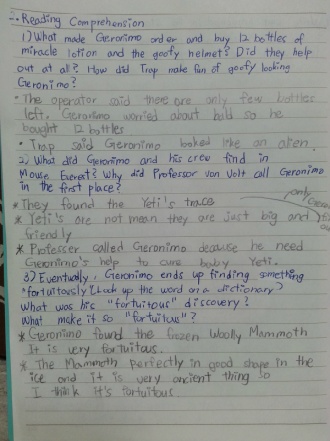 -. Reading Comprehension
1) What made Geronimo order and buy 12 bottles of
miracle lotion and the goofy helmet? Did they help
out at all? How did Trap make fun of goofy looking
Geronimo?
• The operator said there are only few bottles
left. Geronimo worried about bald so he
bought 12 bottles
• Trap said Geronimo looked like an alien.
2) What did Geronimo and his crew find in
Mouse Everest? Why did Professor von Volt call Geronimo
in the first place?
* They found the Yeti's trace
only
* Yeti's are not mean they are just big and
friendly
* Professer called Geronimo because he need
Geronimo's help to cure baby Yeti.
3) Eventually, Geronimo ends up finding something
"fortuitously (Look up the word on a dictionary)
What was his "fortuitous" discovery?
What make it so "fortuitous"?
* Geronimo found the frozen Woolly Mammoth
It is very fortuitous.
* The Mammoth perfectly in good shape in the
ice and it is very ancient thing so
I think it's fortuitous.